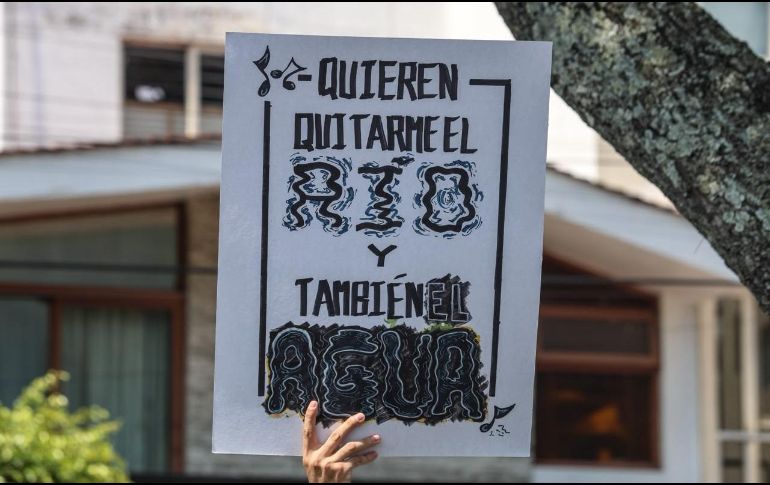 QUIEREN
QUITARME EL
RIO
Y
TAMBIÉN EL
AGUA